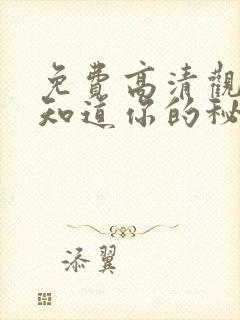 免費高清觀
知道你的秘
添翼